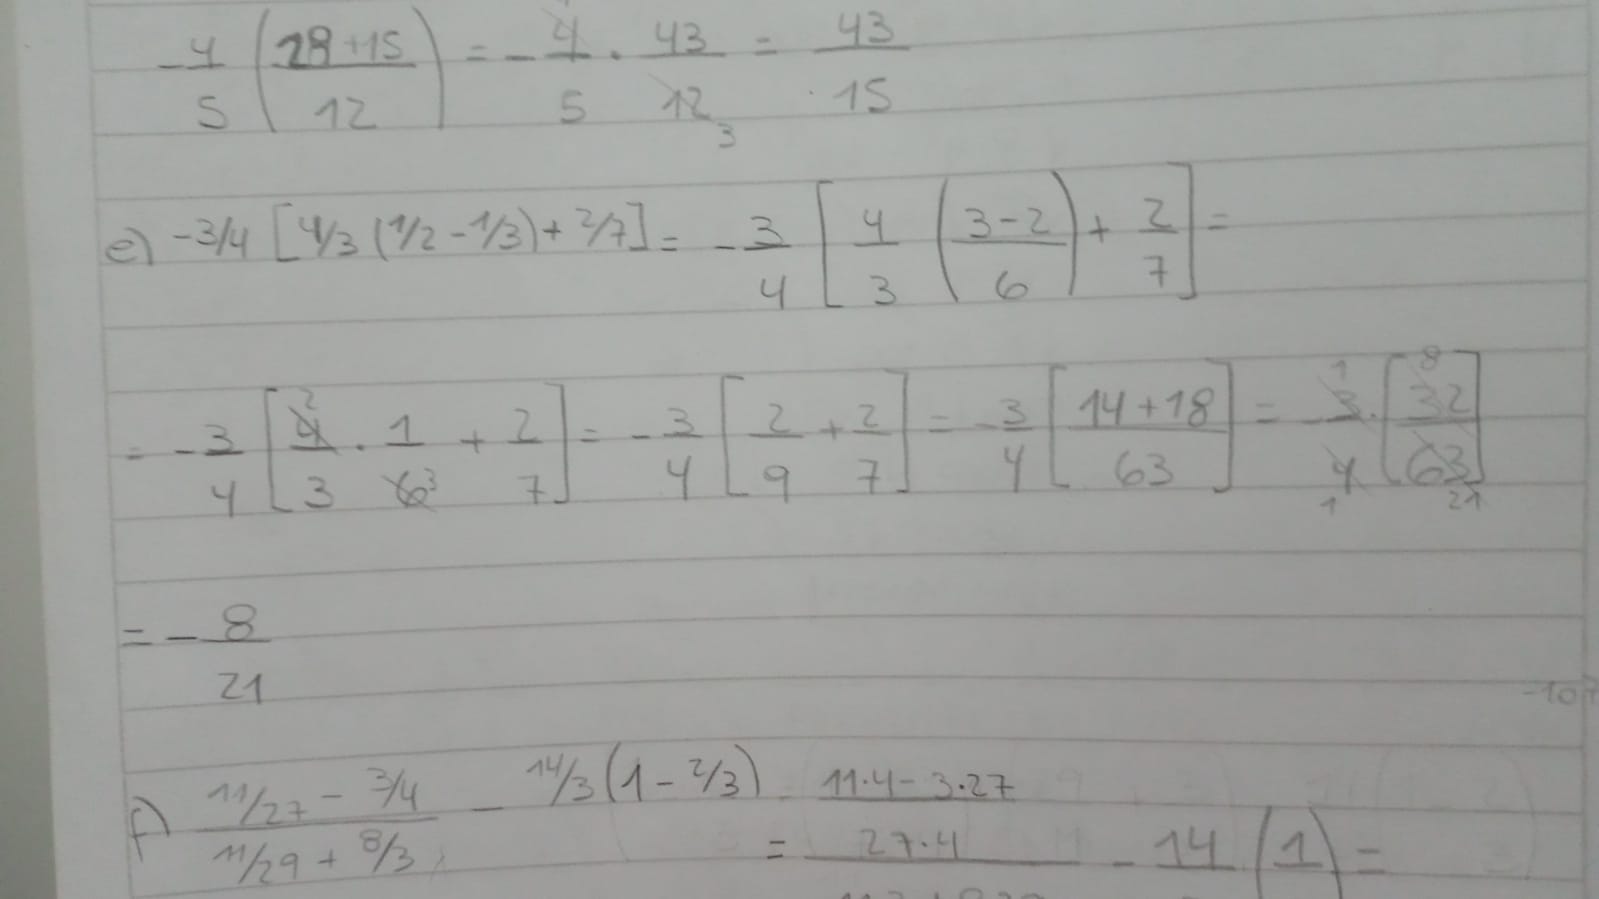 -4/5 (28+15/12) = -4/5 · 43/12 3 = 43/15
e) -3/4 [4/3 (1/2 - 1/3) + 2/7] = -3/4 [4/3 (3-2/6) + 2/7] =
= -3/4 [4 2/3 · 1/6 3 + 2/7] = -3/4 [2/9 + 2/7] = -3/4 [14+18/63] = -3 1/4 1 · [32 8/63 21]
= -8/21
f) 11/27 - 3/4 / 11/29 + 8/3 - 14/3 (1 - 2/3) = 11·4 - 3·27 / 27·4 - 14 (1) =